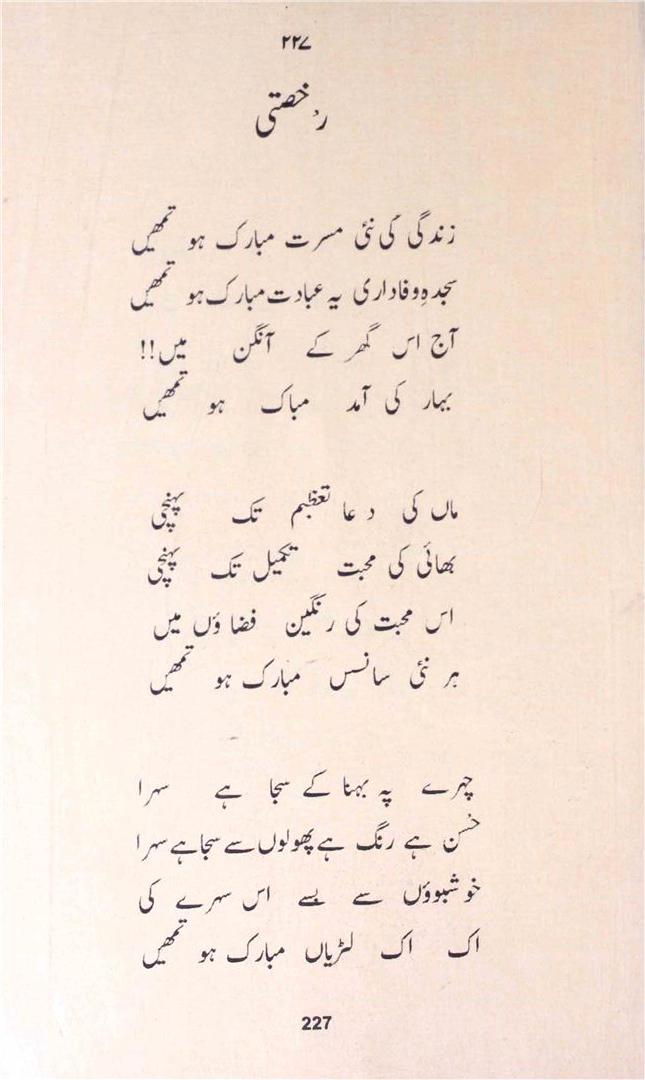 ۲۲۷
رخصتی
زندگی کی نئی مسرت مبارک ہو تمھیں
سجدہِ وفاداری یہ عبادت مبارک ہو تمھیں
آج اس گھر کے آنگن میں!!
بہار کی آمد مباک ہو تمھیں
ماں کی دعا تعظیم تک پہنچی
بھائی کی محبت تکمیل تک پہنچی
اس محبت کی رنگین فضاؤں میں
ہر نئی سانس مبارک ہو تمھیں
چہرے پہ بہنا کے سجا ہے سہرا
حُسن ہے رنگ ہے پھولوں سے سجا ہے سہرا
خوشبوؤں سے بسے اس سہرے کی
اک اک لڑیاں مبارک ہو تمھیں
227